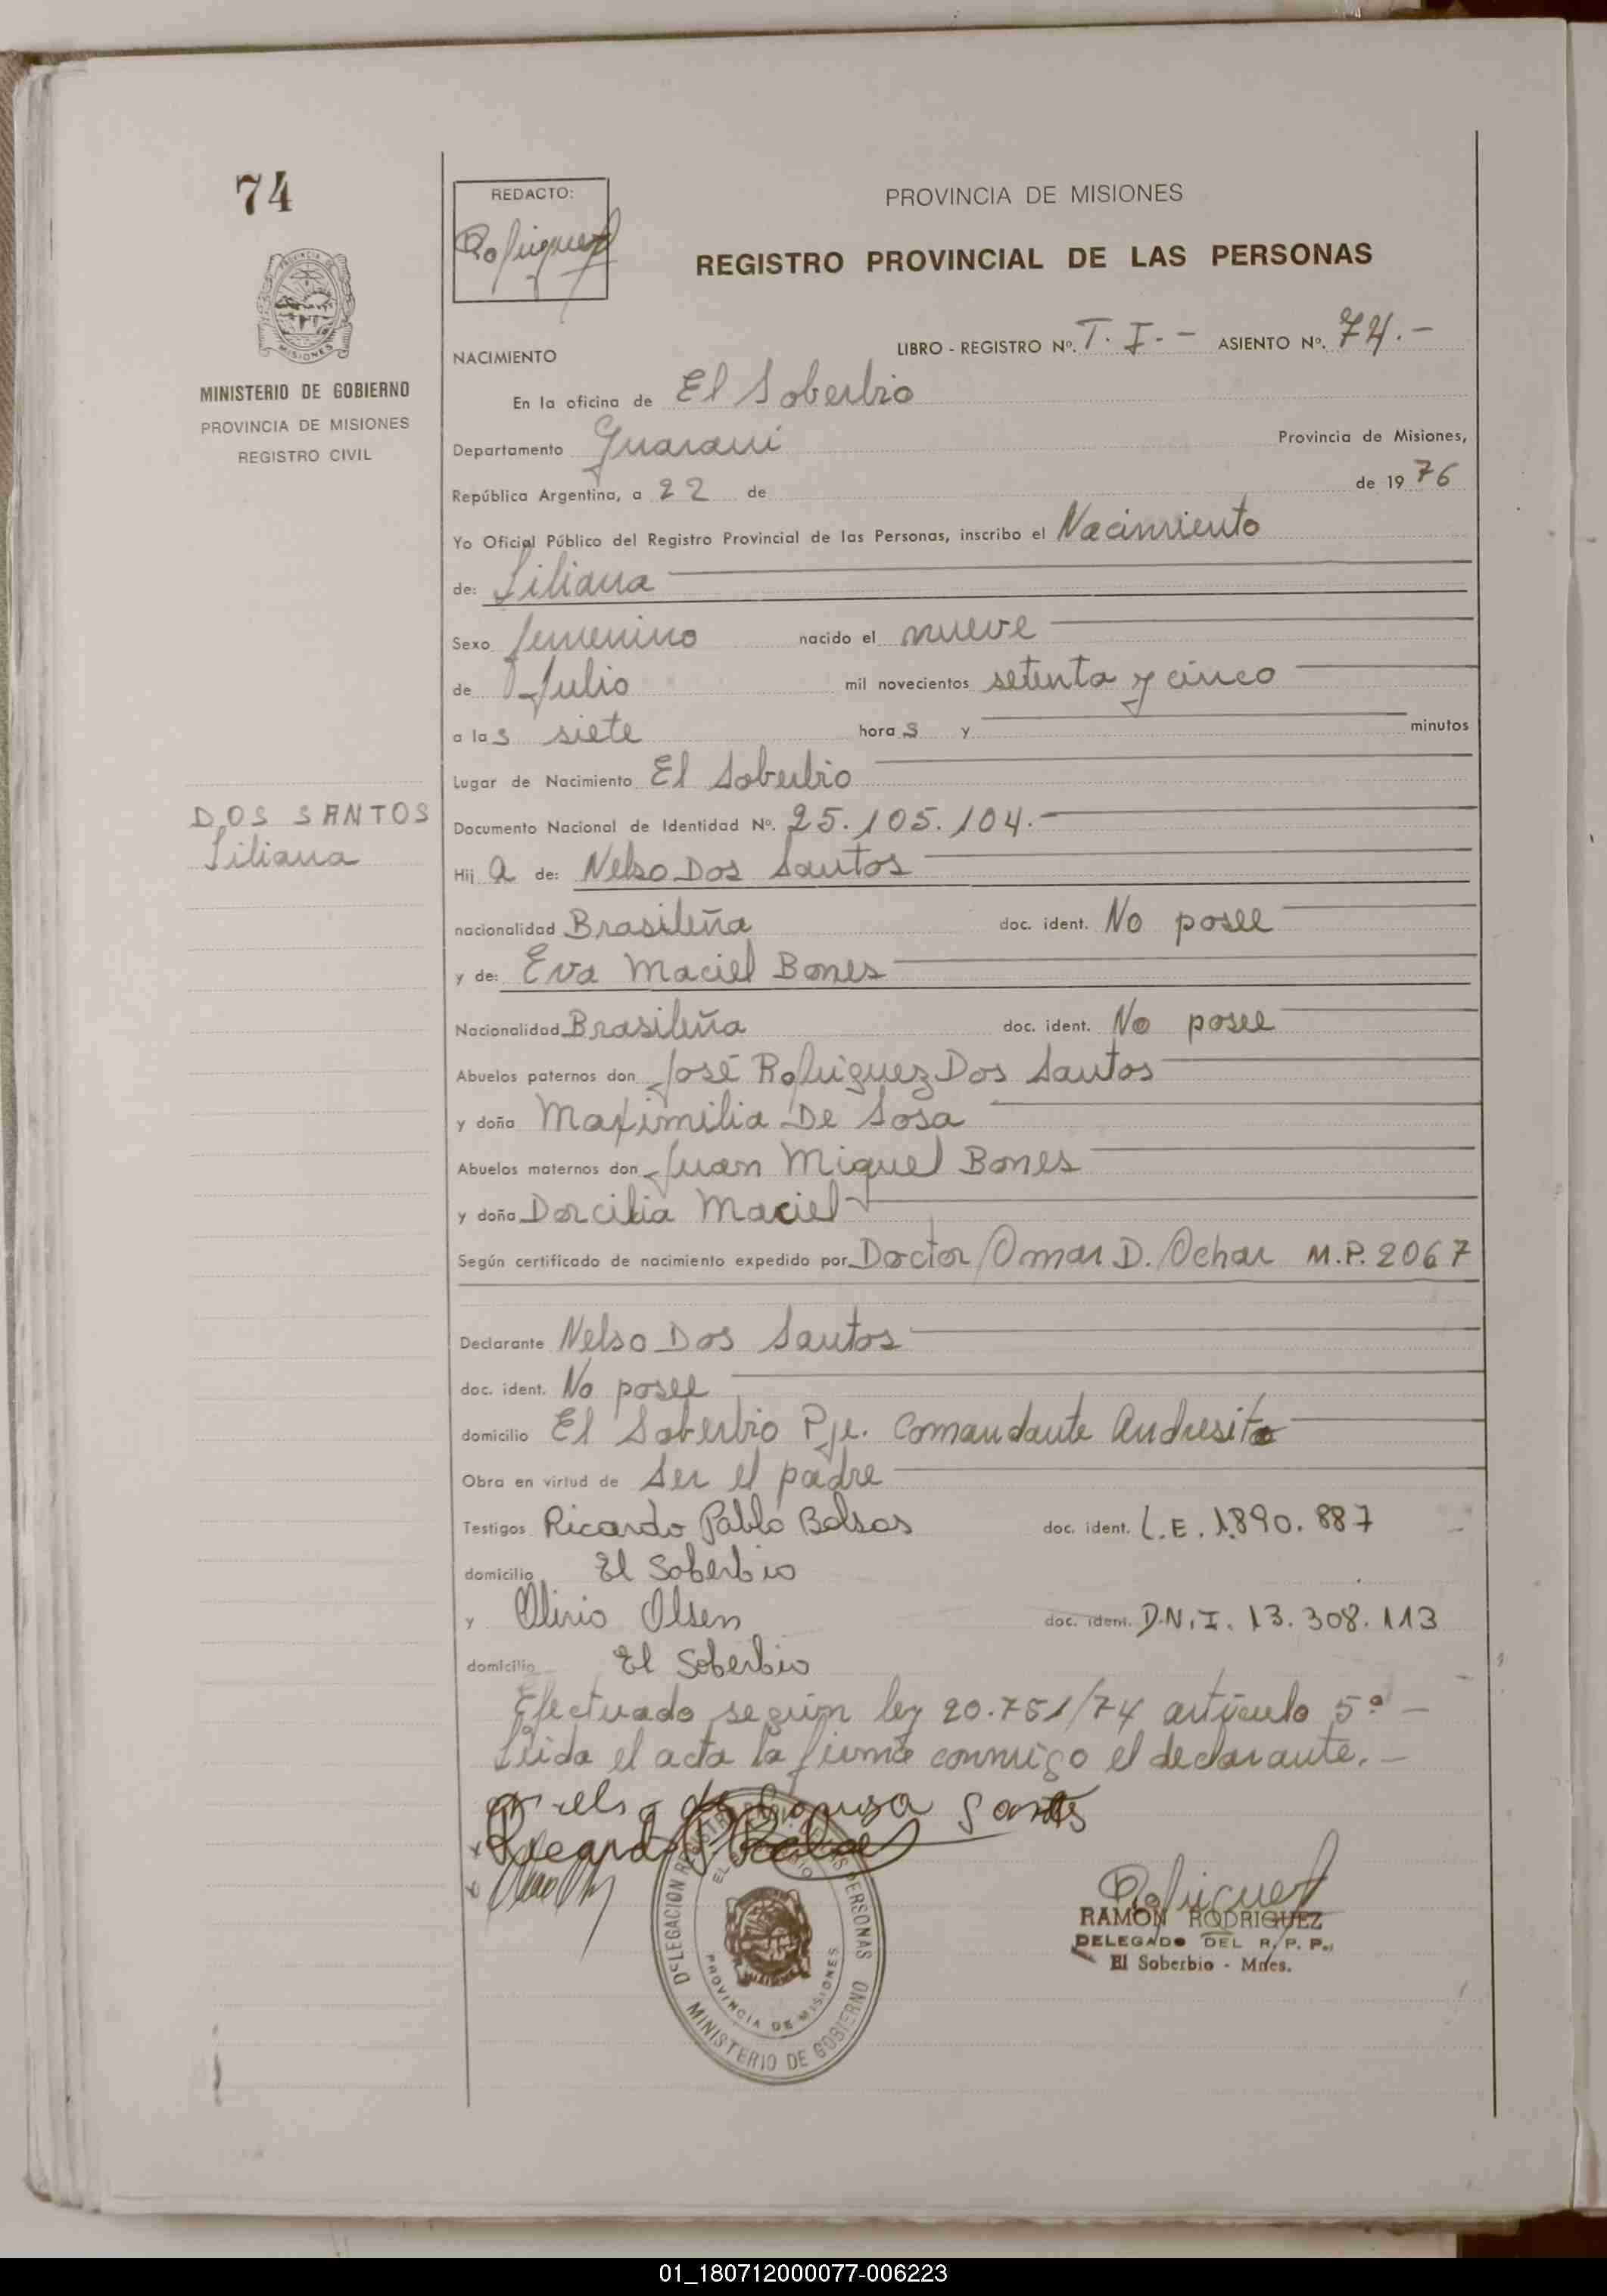 74
REDACTO:
Rodriguez
PROVINCIA DE MISIONES
REGISTRO PROVINCIAL DE LAS PERSONAS
MISIONES
MINISTERIO DE GOBIERNO
PROVINCIA DE MISIONES
REGISTRO CIVIL
LIBRO - REGISTRO Nº. T. I. - ASIENTO Nº. 74. -
NACIMIENTO
En la oficina de El Soberbio
Departamento Guarani Provincia de Misiones,
República Argentina, a 22 de de 1976
Yo Oficial Público del Registro Provincial de las Personas, inscribo el Nacimiento
de: Liliana
Sexo femenino nacido el nueve
de Julio mil novecientos setenta y cinco
a las siete horas y minutos
Lugar de Nacimiento El Soberbio
DOS SANTOS
Liliana
Documento Nacional de Identidad Nº. 25.105.104.-
Hija de: Nelso Dos Santos
nacionalidad Brasileña doc. ident. No posee
y de: Eva Maciel Bones
Nacionalidad Brasileña doc. ident. No posee
Abuelos paternos don José Rodriguez Dos Santos
y doña Maximilia De Sosa
Abuelos maternos don Juan Miguel Bones
y doña Dorcilia Maciel
Según certificado de nacimiento expedido por Doctor Omar D. Ochar M.P. 2067
Declarante Nelso Dos Santos
doc. ident. No posee
domicilio El Soberbio Pje. Comandante Andresito
Obra en virtud de ser el padre
Testigos Ricardo Pablo Balsas doc. ident. L.E. 1.890.887
domicilio El Soberbio
y Olirio Olsen doc. ident. D.N.I. 13.308.113
domicilio El Soberbio
Efectuado según ley 20.751/74 artículo 5º -
Leida el acta la firma conmigo el declarante. -
Santos
Ricardo P Balsas
DELEGACION REGISTRO PERSONAS
EL SOBERBIO
PROVINCIA DE MISIONES
MINISTERIO DE GOBIERNO
Rodriguez
RAMON RODRIGUEZ
DELEGADO DEL R. P. P.
El Soberbio - Mnes.
01_180712000077-006223